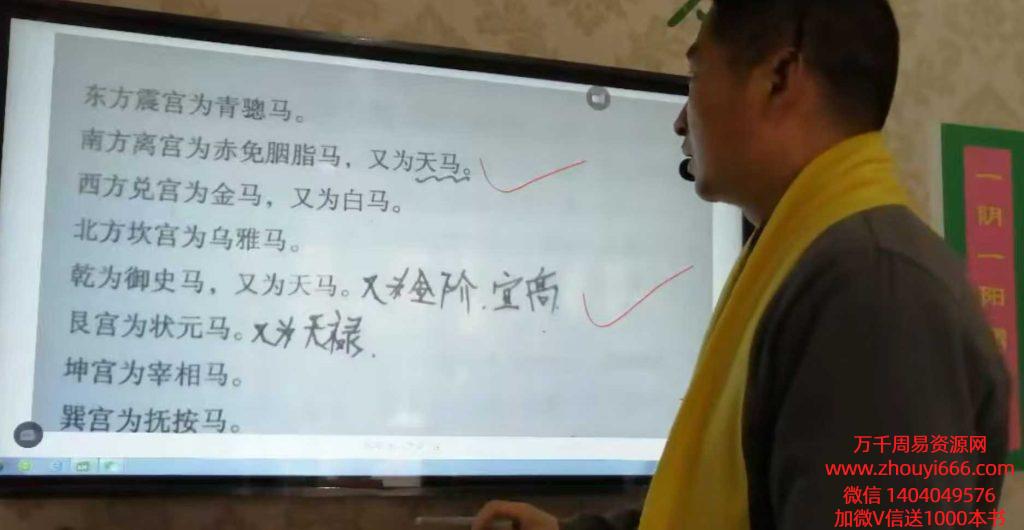 东方震宫为青骢马。
南方离宫为赤免胭脂马，又为天马。
西方兑宫为金马，又为白马。
北方坎宫为乌雅马。
乾为御史马，又为天马。又为金阶.宜高
艮宫为状元马。又为天禄.
坤宫为宰相马。
巽宫为抚按马。
一阴一阳
万千周易资源网
www.zhouyi666.com
微信 1404049576
加微V信送1000本书